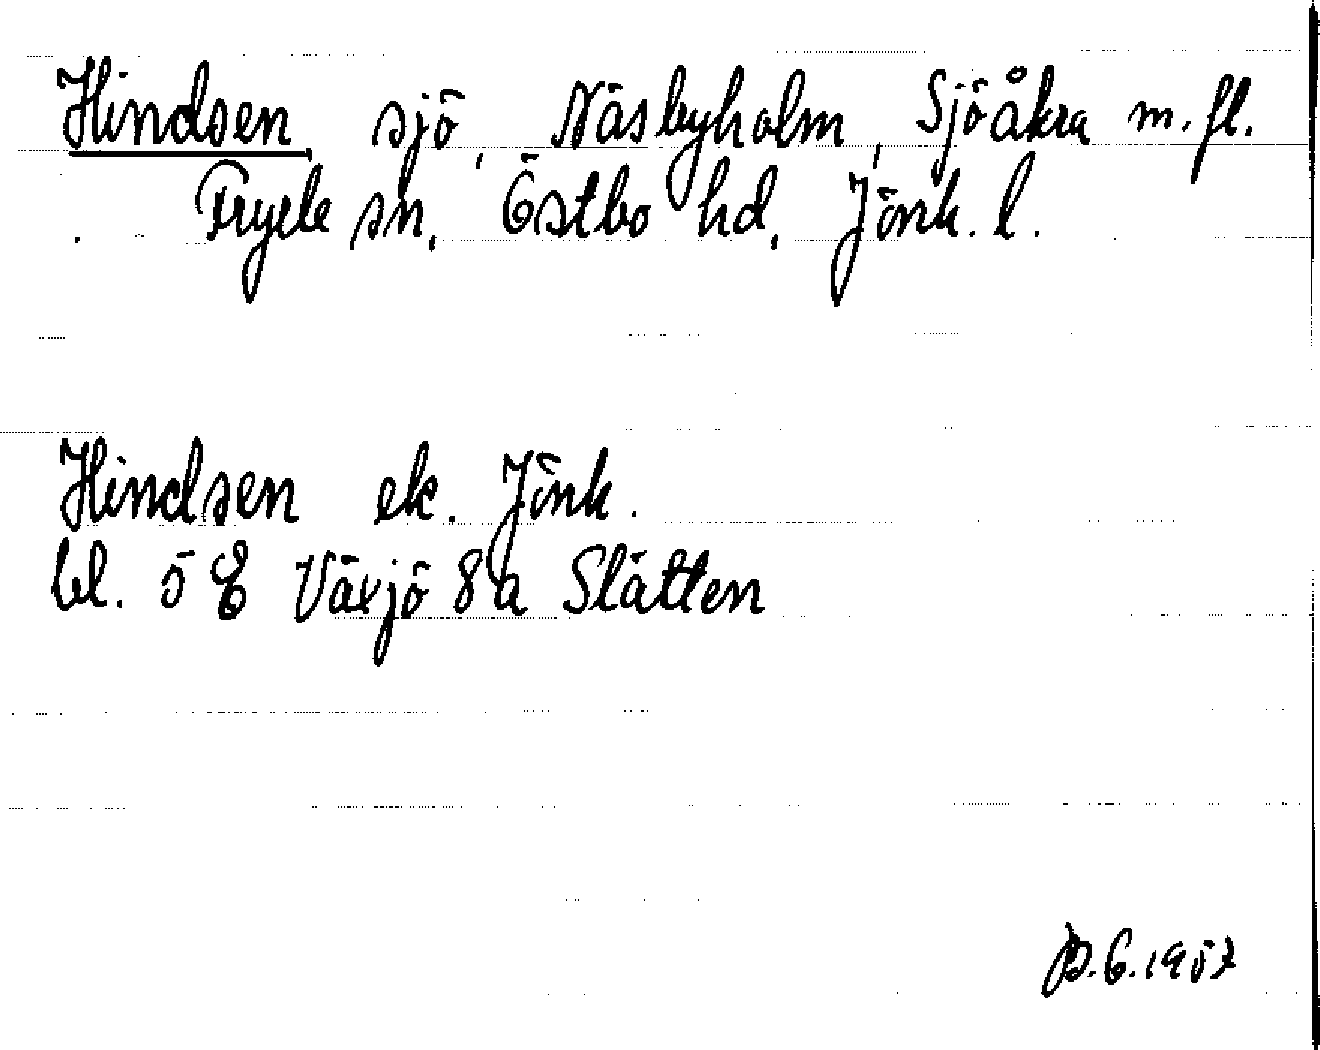 Hindsen, sjö, Näsbyholm, Sjöåkra m. fl.
Fryele sn, Östbo hd, Jönk. l.
Hindsen ek. Jönk.
bl. 5 E Växjö 8 a Slätten
B.G. 1957